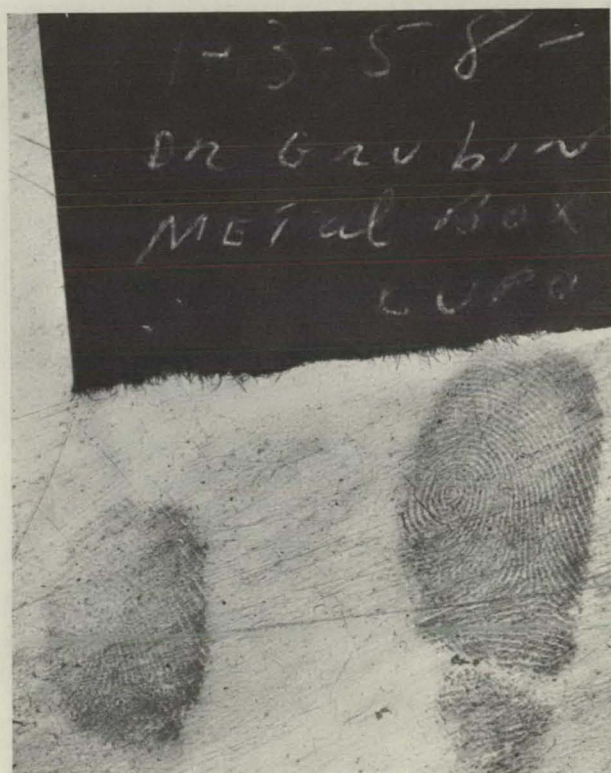 1-3-58-
Dr Grubin
METal Box
CUPO